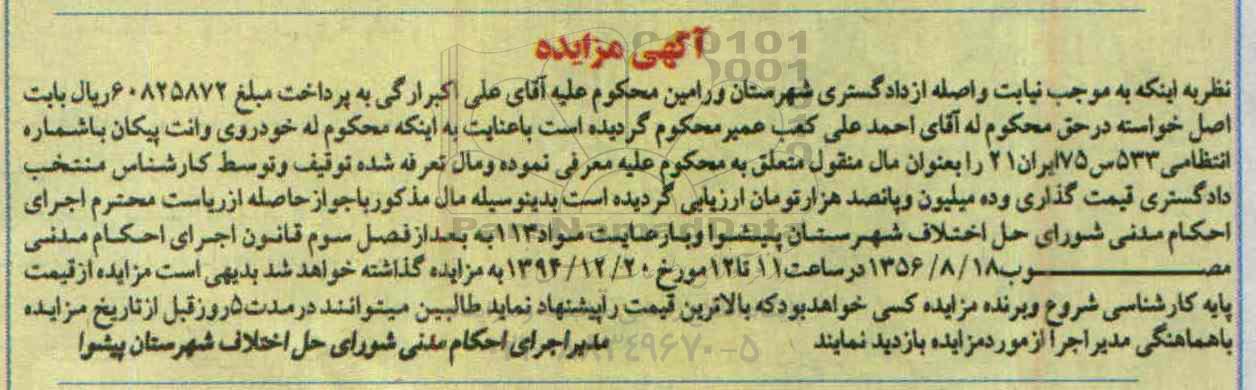 آگهی مزایده
نظر به اینکه به موجب نیابت واصله از دادگستری شهرستان ورامین محکوم علیه آقای علی اکبر ارگی به پرداخت مبلغ ۶۰۸۲۵۸۷۲ ریال بابت
اصل خواسته در حق محکوم له آقای احمد علی کعب عمیر محکوم گردیده است باعنایت به اینکه محکوم له خودروی وانت پیکان باشماره
انتظامی ۵۳۳س۷۵ایران۲۱ را بعنوان مال منقول متعلق به محکوم علیه معرفی نموده ومال تعرفه شده توقیف وتوسط کارشناس منتخب
دادگستری قیمت گذاری وده میلیون وپانصد هزارتومان ارزیابی گردیده است بدینوسیله مال مذکور باجواز حاصله ازریاست محترم اجرای
احکام مدنی شورای حل اختلاف شهرستان پیشوا وبارعایت مواد۱۱۳به بعدازفصل سوم قانون اجرای احکام مدنی
مصوب۱۳۵۶/۸/۱۸ درساعت۱۱ تا۱۲مورخ ۱۳۹۴/۱۲/۲۰ به مزایده گذاشته خواهد شد بدیهی است مزایده ازقیمت
پایه کارشناسی شروع وبرنده مزایده کسی خواهدبودکه بالاترین قیمت راپیشنهاد نماید طالبین میتوانند درمدت۵روزقبل ازتاریخ مزایده
باهماهنگی مدیر اجرا ازموردمزایده بازدید نمایند مدیراجرای احکام مدنی شورای حل اختلاف شهرستان پیشوا